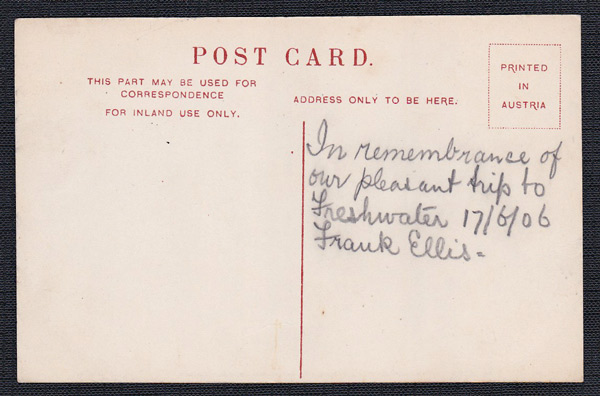 POST CARD.
THIS PART MAY BE USED FOR
CORRESPONDENCE
FOR INLAND USE ONLY.
ADDRESS ONLY TO BE HERE.
PRINTED
IN
AUSTRIA
In remembrance of
our pleasant trip to
Freshwater 17/6/06
Frank Ellis-